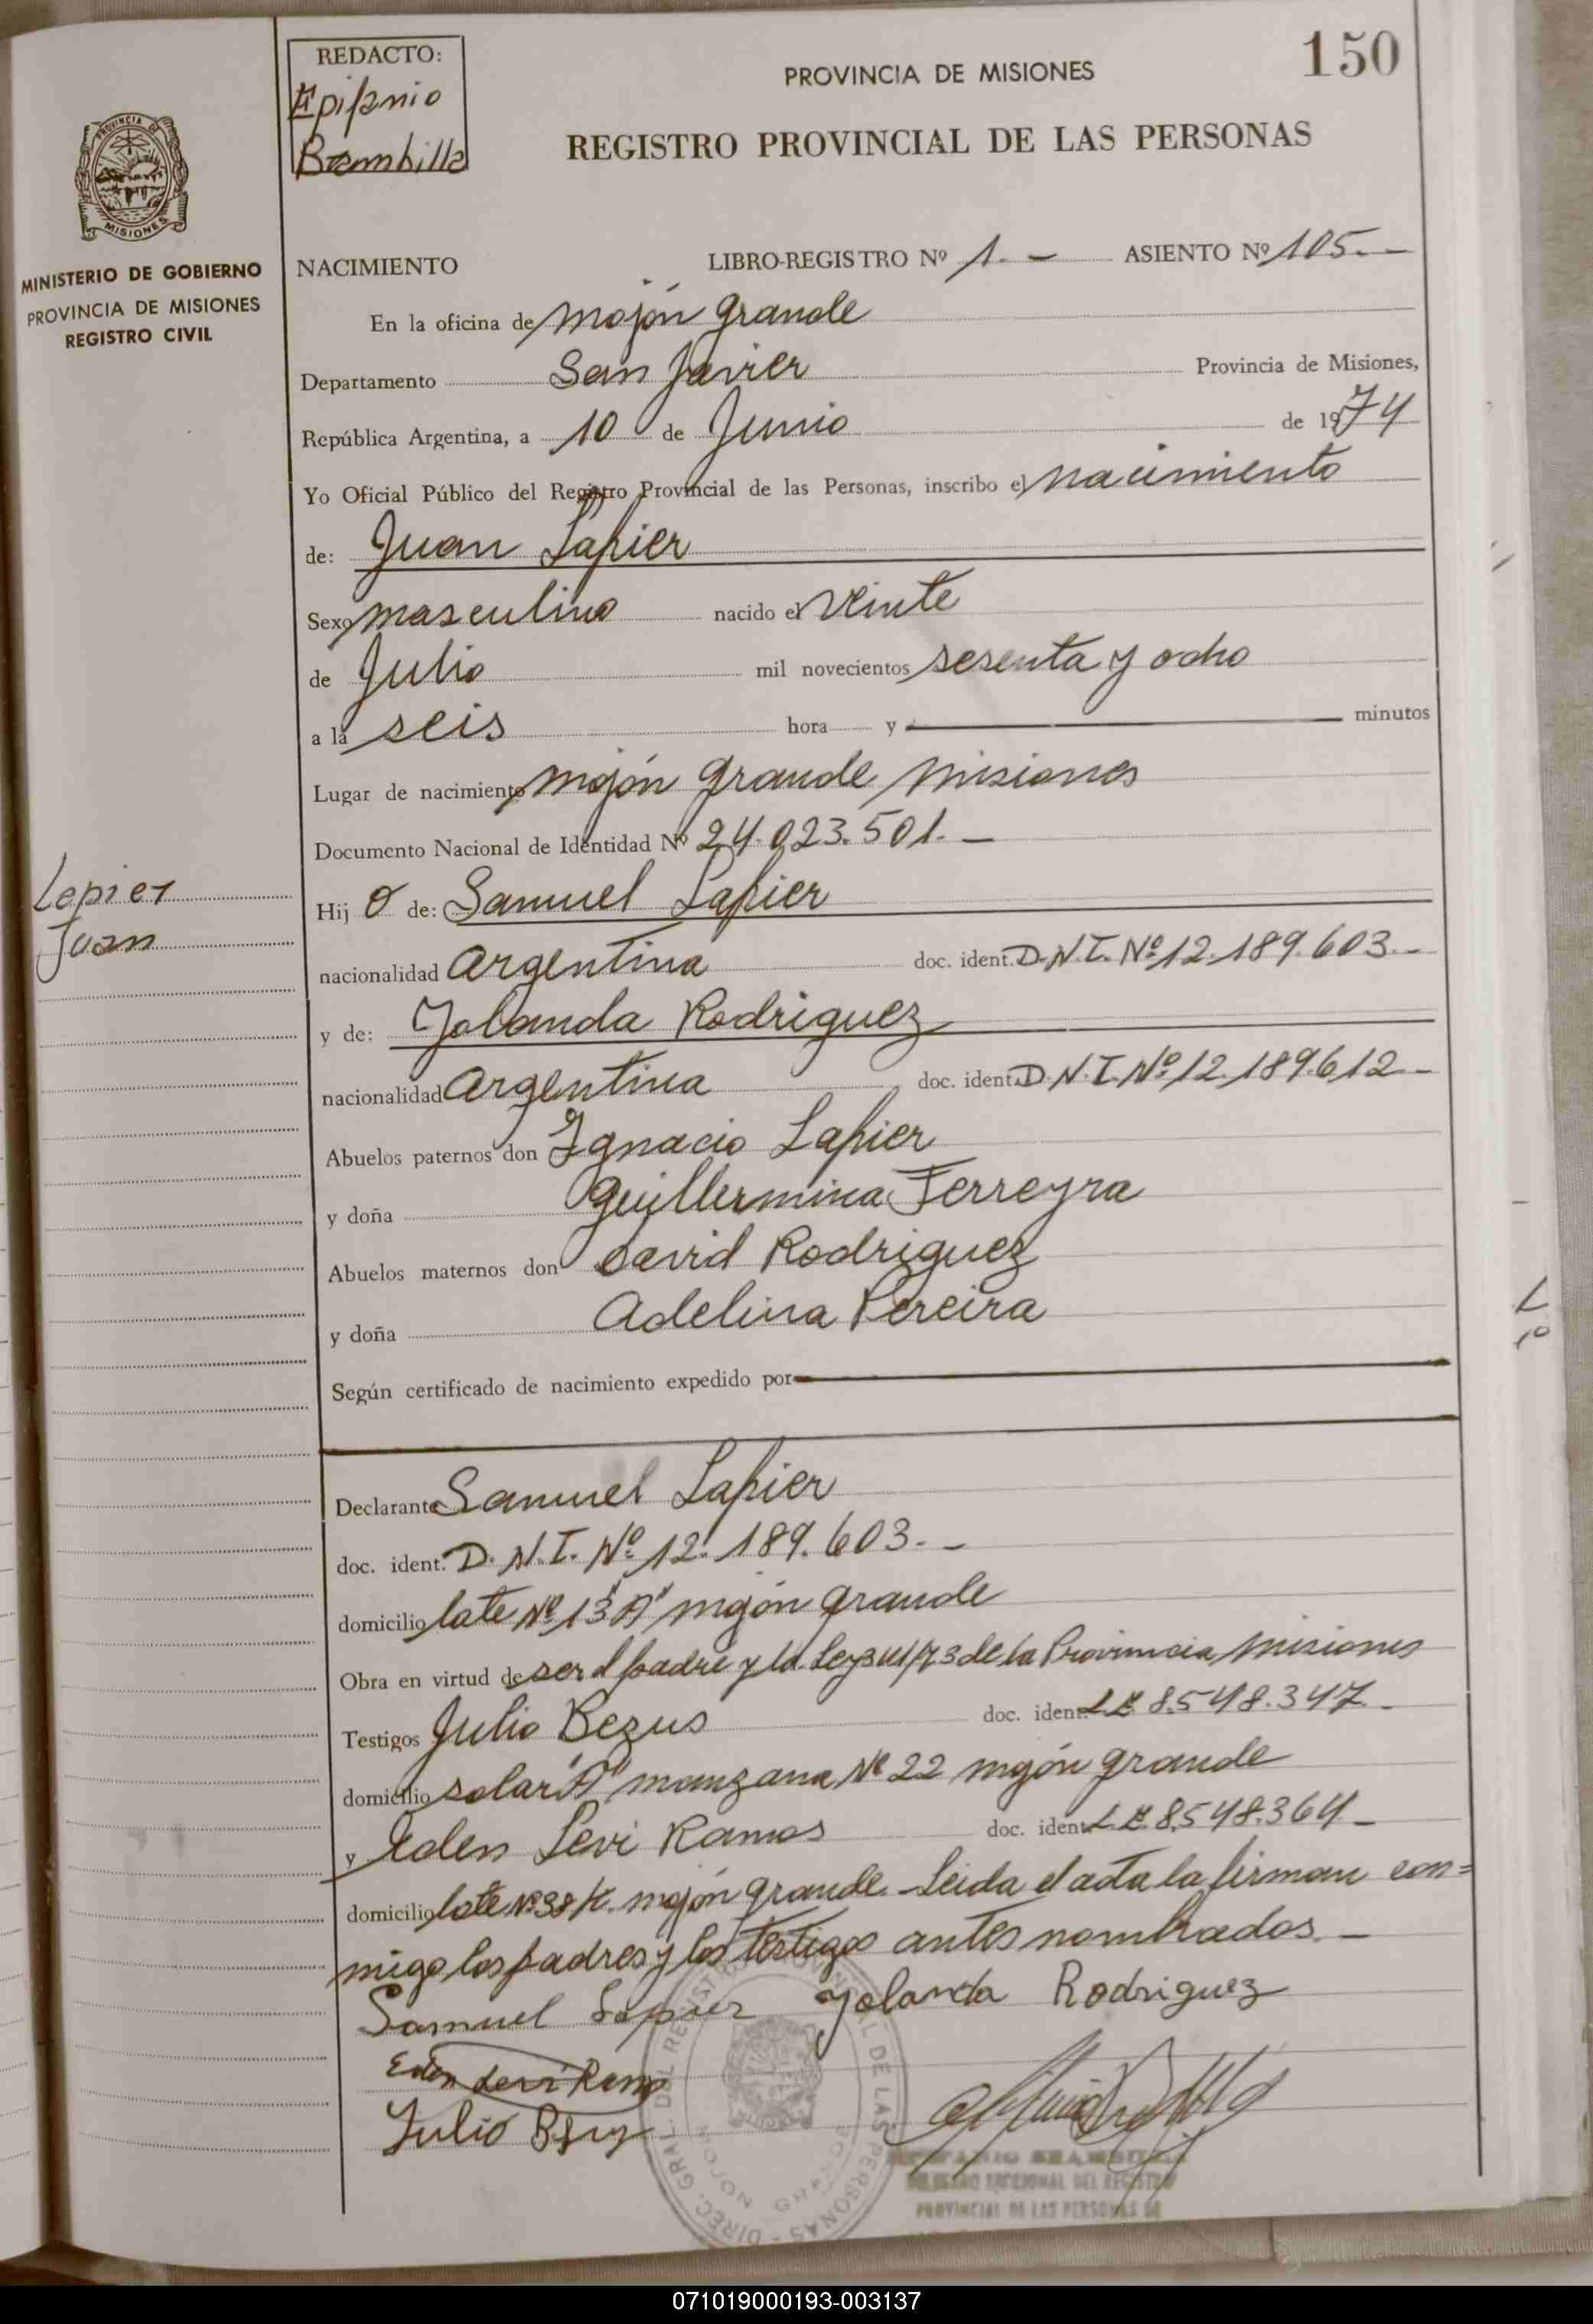 REDACTO:
Epifanio
Brambilla
150
PROVINCIA DE MISIONES
REGISTRO PROVINCIAL DE LAS PERSONAS
PROVINCIA DE
MISIONES
MINISTERIO DE GOBIERNO
PROVINCIA DE MISIONES
REGISTRO CIVIL
NACIMIENTO LIBRO-REGISTRO Nº 1.- ASIENTO Nº 105.-
En la oficina de Mojón Grande
Departamento San Javier Provincia de Misiones,
República Argentina, a 10 de Junio de 1974
Yo Oficial Público del Registro Provincial de las Personas, inscribo el nacimiento
de: Juan Lapier
Sexo masculino nacido el veinte
de Julio mil novecientos sesenta y ocho
a la seis hora y minutos
Lugar de nacimiento Mojón Grande Misiones
Documento Nacional de Identidad Nº 24.023.501.-
Lepier
Juan
Hij o de: Samuel Lapier
nacionalidad Argentina doc. ident. D.N.I. Nº 12.189.603.-
y de: Yolanda Rodriguez
nacionalidad Argentina doc. ident. D.N.I. Nº 12.189.612-
Abuelos paternos don Ignacio Lapier
y doña Guillermina Ferreyra
Abuelos maternos don David Rodriguez
y doña Adelina Pereira
Según certificado de nacimiento expedido por
Declarante Samuel Lapier
doc. ident. D.N.I. Nº 12.189.603.-
domicilio lote Nº 13 "A" Mojón Grande
Obra en virtud de ser el padre y la Ley de la Provincia Misiones
Testigos Julio Bezus doc. ident. L.E. 8.548.347-
domicilio solar "A" manzana Nº 22 Mojón Grande
y Eden Levi Ramos doc. ident. L.E. 8.548.364-
domicilio lote Nº 38 Mojón Grande.- Leida el acta la firman con=
migo los padres y los testigos antes nombrados.-
Samuel Lapier Yolanda Rodriguez
Eden Levi Ramo
Julio
DIREC. GRAL. DEL REGISTRO PROVINCIAL DE LAS PERSONAS
MOJON GRANDE
EPIFANIO BRAMBILLA
DELEGADO SECCIONAL DEL REGISTRO
PROVINCIAL DE LAS PERSONAS DE
071019000193-003137